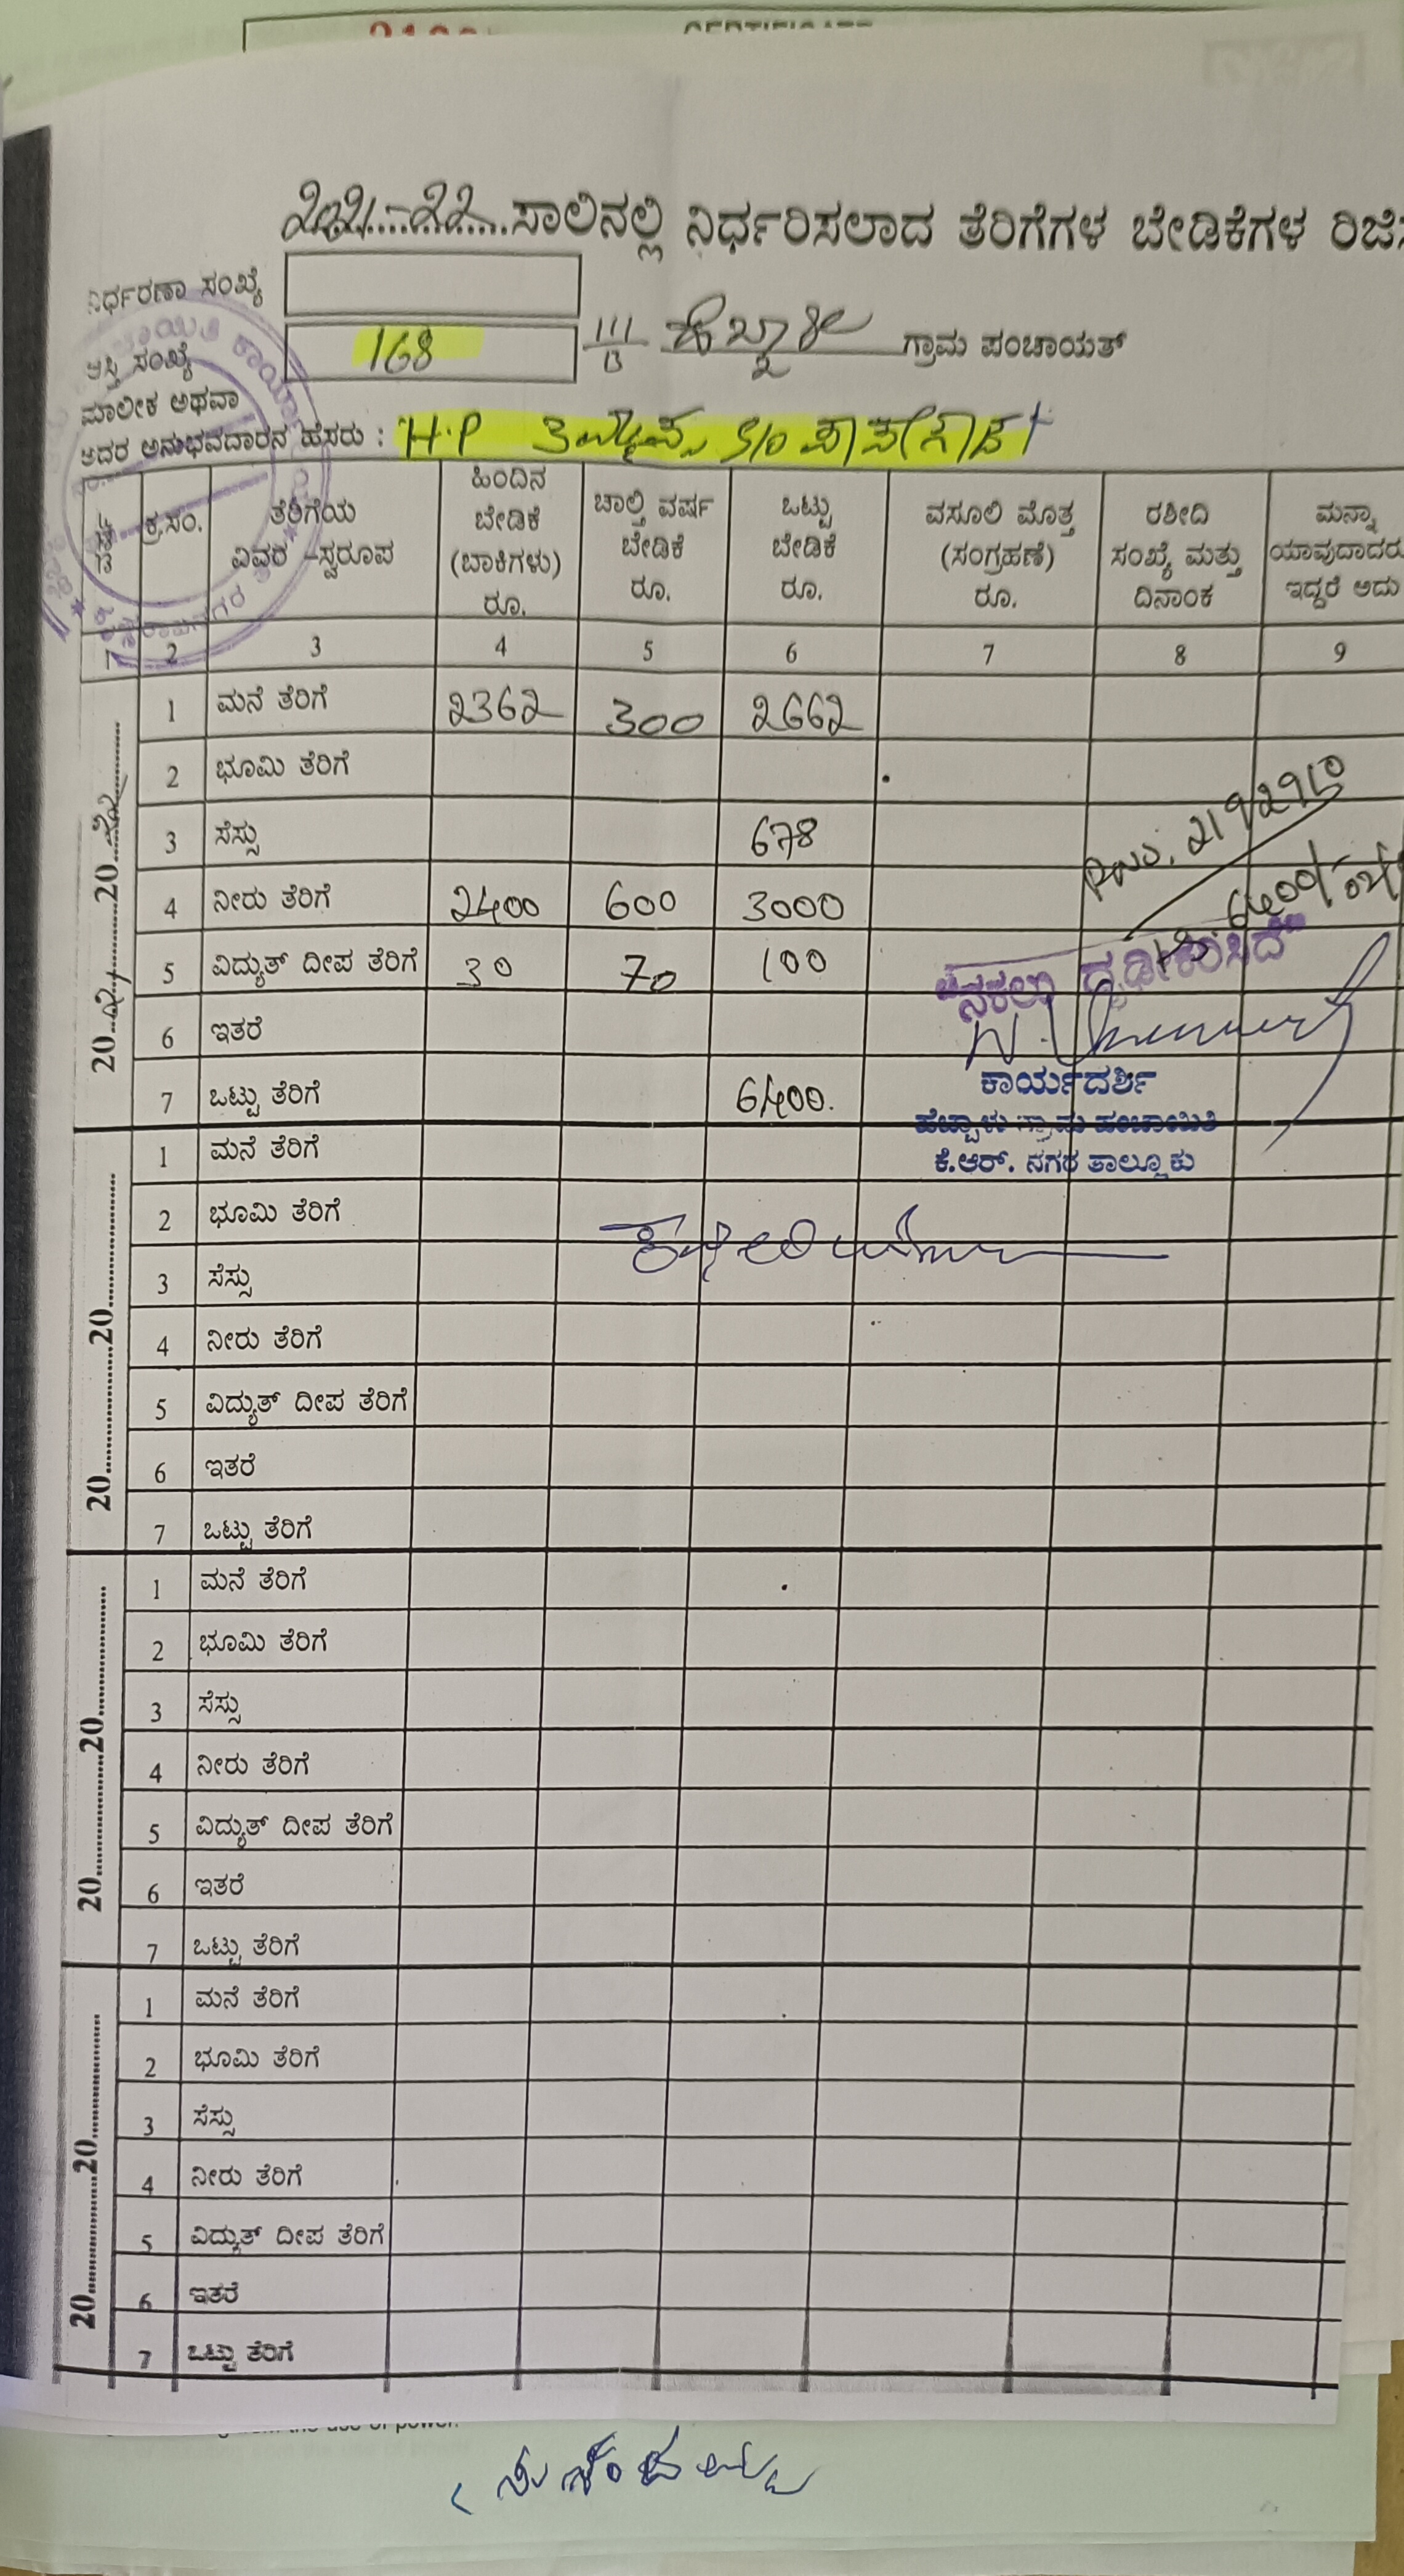 CERTIFICATE
2021-22 ಸಾಲಿನಲ್ಲಿ ನಿರ್ಧರಿಸಲಾದ ತೆರಿಗೆಗಳ ಬೇಡಿಕೆಗಳ
ನಿರ್ಧರಣಾ ಸಂಖ್ಯೆ
ಆಸ್ತಿ ಸಂಖ್ಯೆ 168 111/B ಹೆಬ್ಬಾಳು ಗ್ರಾಮ ಪಂಚಾಯತ್
ಮಾಲೀಕ ಅಥವಾ
ಅದರ ಅನುಭವದಾರನ ಹೆಸರು : H.P S/O
ವರ್ಷ ಕ್ರ.ಸಂ. ತೆರಿಗೆಯ ವಿವರ -ಸ್ವರೂಪ ಹಿಂದಿನ ಬೇಡಿಕೆ (ಬಾಕಿಗಳು) ರೂ. ಚಾಲ್ತಿ ವರ್ಷ ಬೇಡಿಕೆ ರೂ. ಒಟ್ಟು ಬೇಡಿಕೆ ರೂ. ವಸೂಲಿ ಮೊತ್ತ (ಸಂಗ್ರಹಣೆ) ರೂ. ರಶೀದಿ ಸಂಖ್ಯೆ ಮತ್ತು ದಿನಾಂಕ ಮನ್ನಾ ಯಾವುದಾದರು ಇದ್ದರೆ ಅದು
1 2 3 4 5 6 7 8 9
20 21 20 22
1 ಮನೆ ತೆರಿಗೆ 2362 300 2662
2 ಭೂಮಿ ತೆರಿಗೆ
3 ಸೆಸ್ಸು 678
4 ನೀರು ತೆರಿಗೆ 2400 600 3000
5 ವಿದ್ಯುತ್ ದೀಪ ತೆರಿಗೆ 30 70 100
6 ಇತರೆ
7 ಒಟ್ಟು ತೆರಿಗೆ 6400.
ನಕಲು ದೃಢೀಕರಿಸಿದೆ
ಕಾರ್ಯದರ್ಶಿ
ಹೆಬ್ಬಾಳು ಗ್ರಾಮ ಪಂಚಾಯಿತಿ
ಕೆ.ಆರ್. ನಗರ ತಾಲ್ಲೂಕು
20...............20...............
1 ಮನೆ ತೆರಿಗೆ
2 ಭೂಮಿ ತೆರಿಗೆ
3 ಸೆಸ್ಸು
4 ನೀರು ತೆರಿಗೆ
5 ವಿದ್ಯುತ್ ದೀಪ ತೆರಿಗೆ
6 ಇತರೆ
7 ಒಟ್ಟು ತೆರಿಗೆ
20...............20...............
1 ಮನೆ ತೆರಿಗೆ
2 ಭೂಮಿ ತೆರಿಗೆ
3 ಸೆಸ್ಸು
4 ನೀರು ತೆರಿಗೆ
5 ವಿದ್ಯುತ್ ದೀಪ ತೆರಿಗೆ
6 ಇತರೆ
7 ಒಟ್ಟು ತೆರಿಗೆ
20...............20...............
1 ಮನೆ ತೆರಿಗೆ
2 ಭೂಮಿ ತೆರಿಗೆ
3 ಸೆಸ್ಸು
4 ನೀರು ತೆರಿಗೆ
5 ವಿದ್ಯುತ್ ದೀಪ ತೆರಿಗೆ
6 ಇತರೆ
7 ಒಟ್ಟು ತೆರಿಗೆ
the use of power.